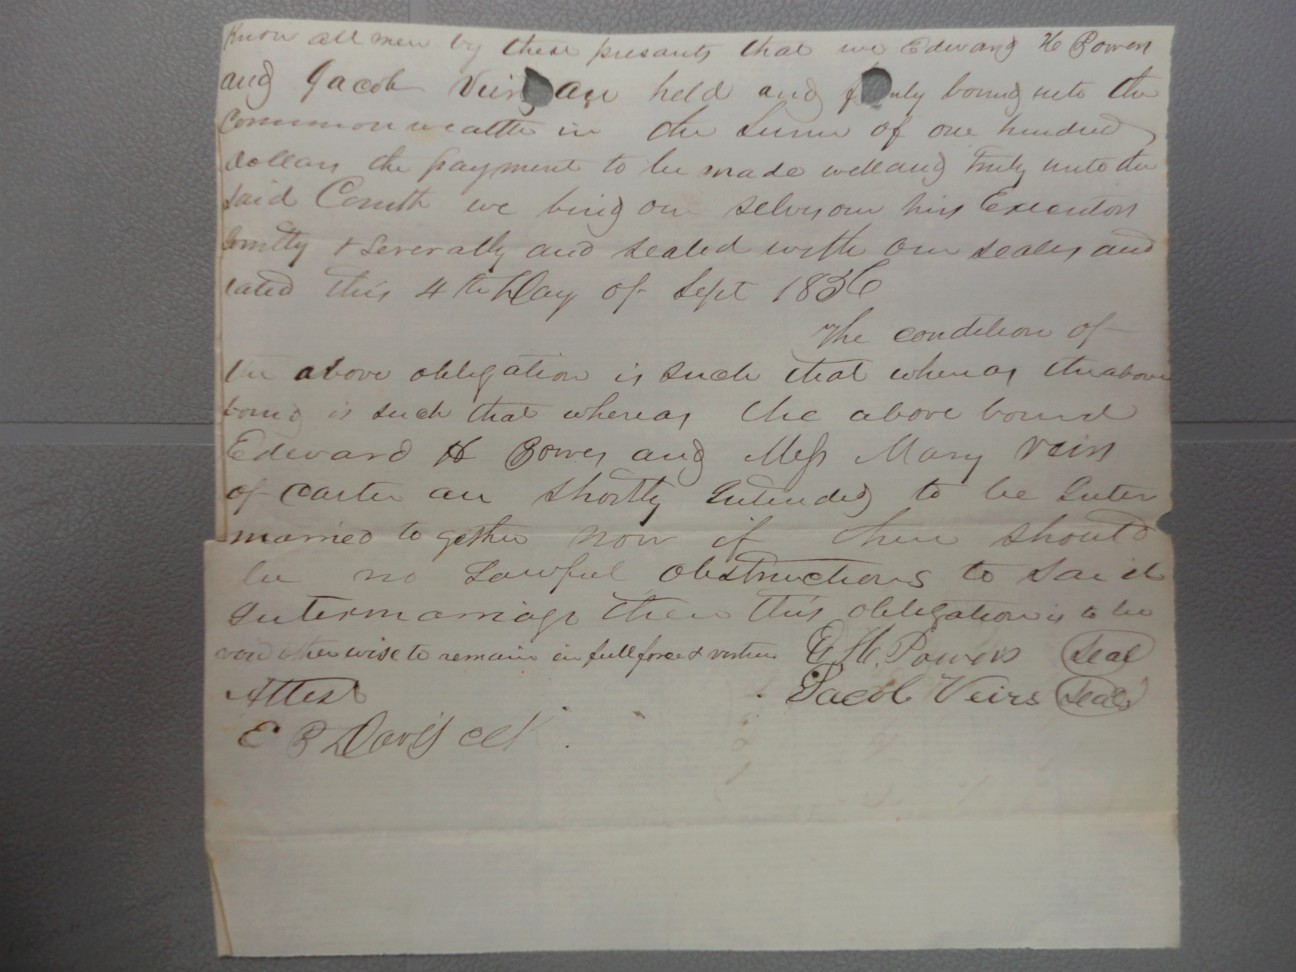 Know all men by these presants that we Edward H Powers
and Jacob Veirs are held and firmly bound unto the
Commonwealth in the Sum of one hundred
dollars the payment to be made well and Truly unto the
said Comth we bind our selvs our hirs Executors
Jointly & Severally and sealed with our seales and
dated this 4th Day of Sept 1836
The condition of
the above obligation is such that whereas the above
bound is such that whereas the above bound
Edward H Powers and Miss Mary Veirs
of Carter are shortly Intended to be Inter
married together now if there should
be no Lawful obstructions to said
Intermarriage then this obligation is to be
void otherwise to remain in full force & vertue E. H. Powers Seal
Attest Jacob Veirs Seal
E B Davis clk